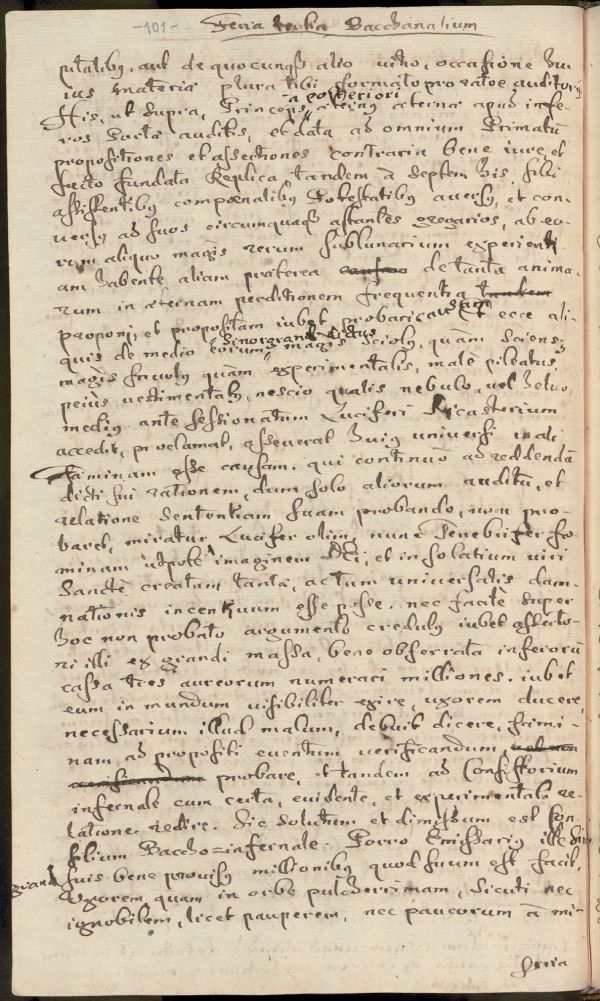 -101- Feria tertia Bacchanalium
putatibus, aut de quocunque alio vitio, occasione hu
ius materia plura tibi formalo pro ratoe auditorij
a posteriori
His, ut supra, Princeps aeternus aeterna apud infe-
ros Porta auditis, et data ad omnium Primatum
propositiones et assertiones contraria bene iure, et
facto fundata Replica tandem a septem his sibi
assistentibus compaenalibus Potestatibus aversus, et con-
versus ad suos circumquaque astantes gregarios, ab eo-
rum aliquo magis rerum sublunarium experienti-
am habente aliam praeterea causam de tanta anima-
rum in aeternam perditionem frequentia tandem
proponi, et propositam iubet probari causam. Et ecce ali-
quis de medio eorum magis sciolus, quam sciens,
magis frivolus quam experimentalis, male pileatus
peius vestimentalis, nescio qualis nebulo, vel helvo,
medius ante sessionatum Luciferi Dicasterium
accedit, proclamat, asseverat huius universi mali
Faeminam esse causam. qui continuo ad reddendam
dicti sui rationem, dum solo aliorum auditu, et
relatione sententiam suam probando, non pro-
baret, miratur Lucifer olim, nunc Tenebrifer foe
minam utpote imaginem Dei, et in solatium viri
sancte creatam, tanta, actum universalis dam-
nationis incentivum esse posse. nec facile super
hoc non probato argumento credulus iubet asserto-
ri illi ex grandi massa, bene obserrata inferorum
cassa tres aureorum numerari milliones. iubet
eum in mundum visibiliter exire, uxorem ducere,
necessarium illud malum, debuit dicere, faemi-
nam ad propositi eventum verificandum, vel non
verificandum probare, et tandem ad Consistorium
infernale cum certa, evidente, et experimentali re-
latione redire. Sic solutum et dimissum est Con-
silium Baccho=infernale. Porro Emissarius ille de
suis bene provisus millionibus quod suum est facit,
Uxorem, quam in orbe pulcherrimam, sicuti nec
ignobilem, licet pauperem, nec paucorum a mi-
feria